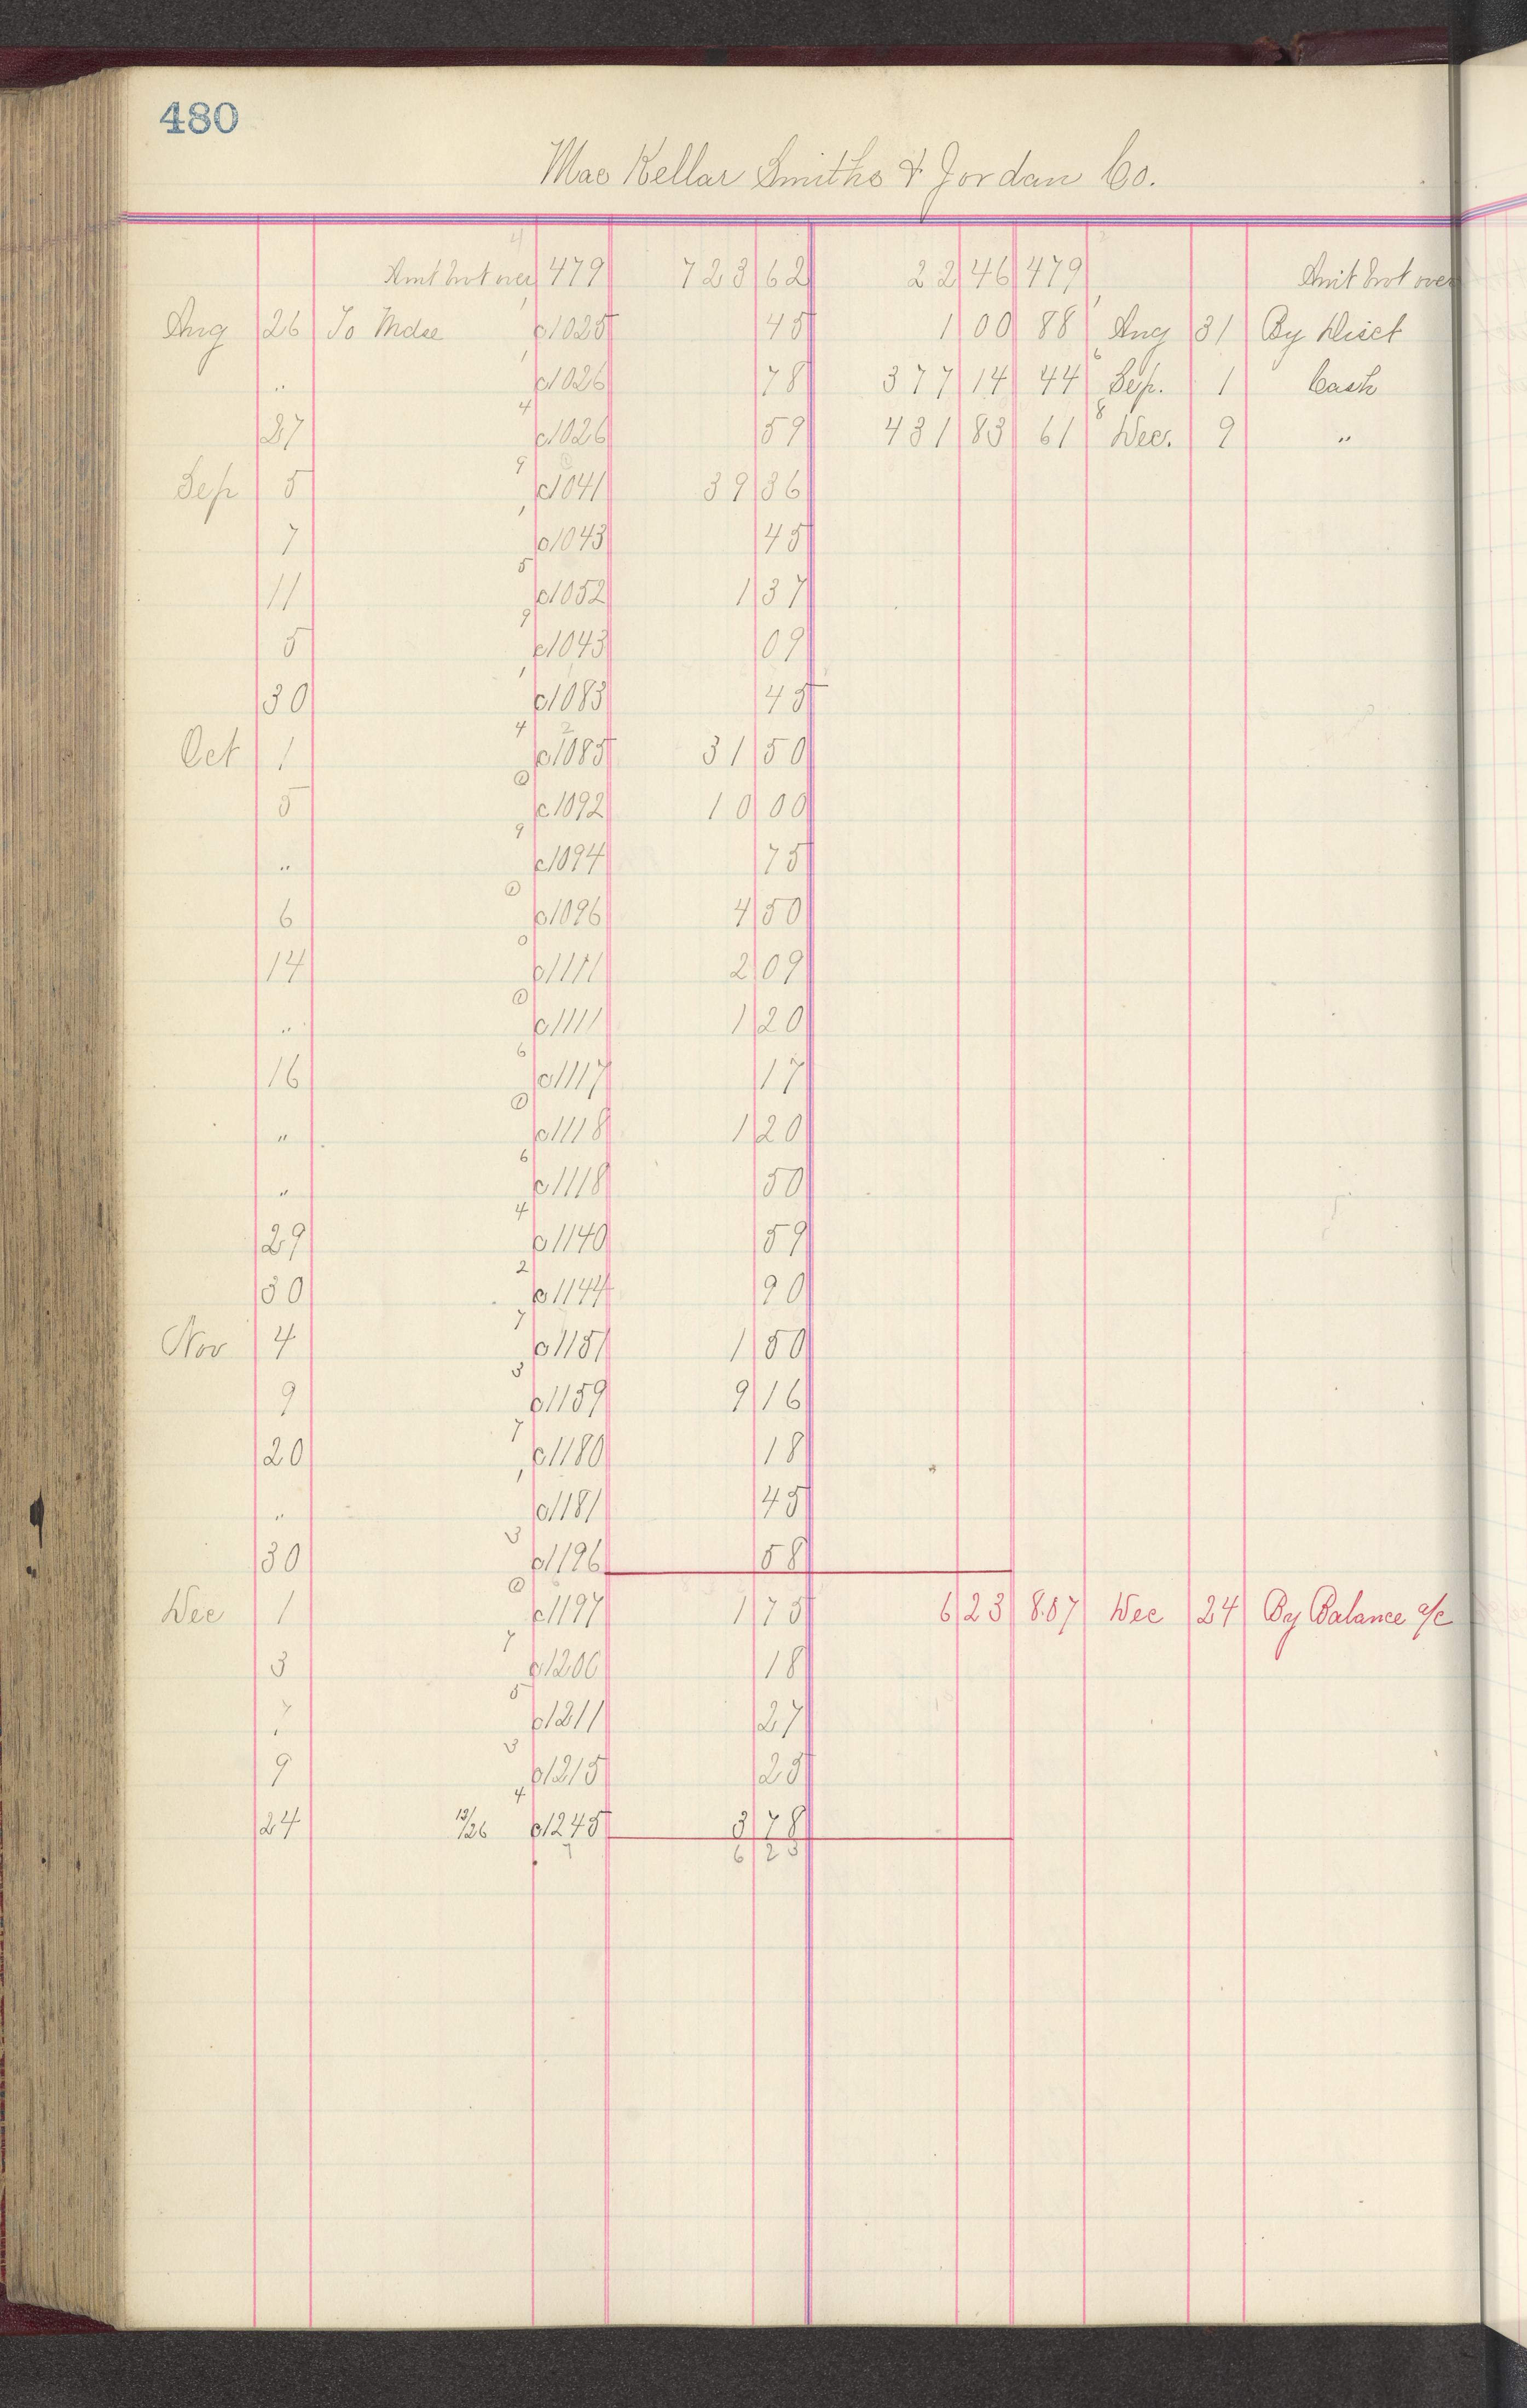 480
Mac Kellar Smiths & Jordan Co.
Amt brot over 479 723 62 22 46 479 Amt brot over
Aug 26 To Mdse c1025 45 1 00 88 Aug 31 By Disct
" c1026 78 377 14 44 Sep. 1 Cash
27 c1026 59 431 83 61 Dec. 9 "
Sep 5 c1041 39 36
7 c1043 45
11 c1052 1 37
5 c1043 09
30 c1083 45
Oct 1 c1085 31 50
5 c1092 10 00
" c1094 75
6 c1096 4 50
14 c1111 2 09
" c1111 1 20
16 c1117 17
" c1118 1 20
" c1118 50
29 c1140 59
30 c1144 90
Nov 4 c1151 1 50
9 c1159 9 16
20 c1180 18
" c1181 45
30 c1196 58
Dec 1 c1197 1 75 6 23 807 Dec 24 By Balance a/c
3 c1200 18
7 c1211 27
9 c1215 25
24 12/26 c1245 3 78
6 23